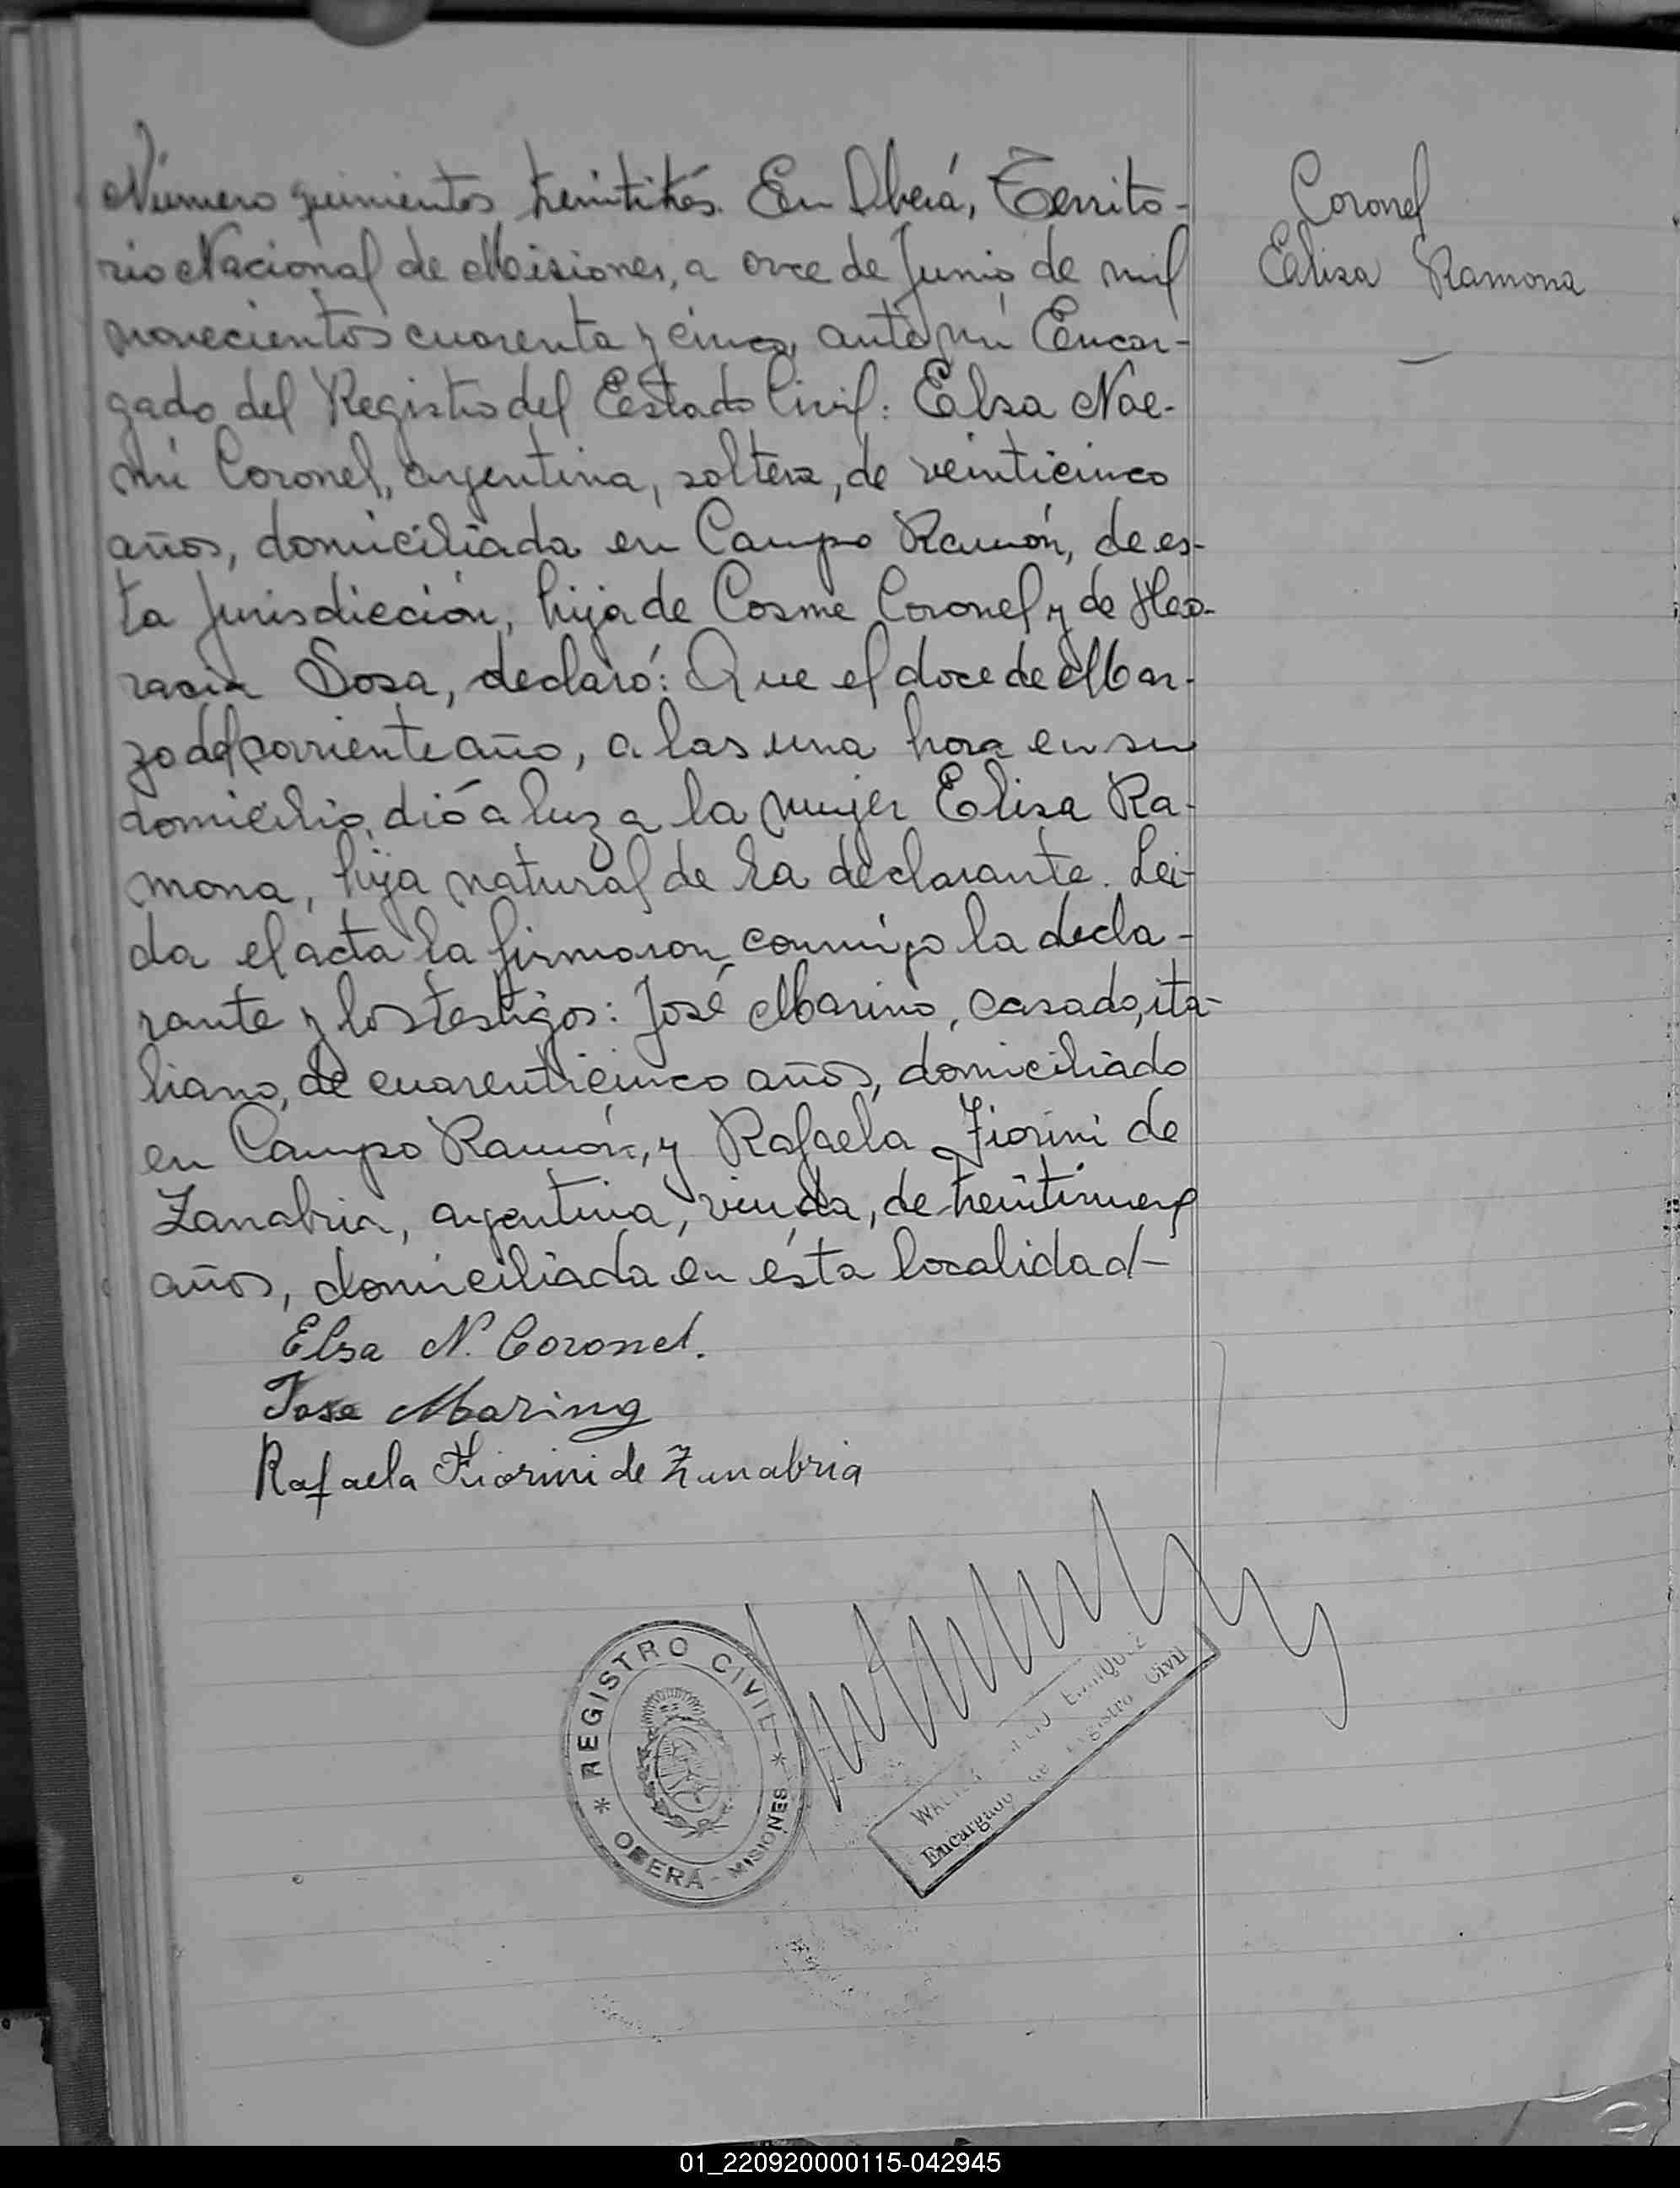 Número quinientos treintitrés. En Oberá, Territo-
rio Nacional de Misiones, a once de Junio de mil
novecientos cuarenta y cinco, ante mí Encar-
gado del Registro del Estado Civil: Elsa Noe-
mí Coronel, argentina, soltera, de veinticinco
años, domiciliada en Campo Ramón, de es-
ta Jurisdicción, hija de Cosme Coronel y de
Sosa, declaró: Que el doce de Mar-
zo del corriente año, a las una hora en su
domicilio, dió a luz a la mujer Elisa Ra-
mona, hija natural de la declarante. Leí-
da el acta la firmaron conmigo la decla-
rante y los testigos: José Marino, casado, ita-
liano, de cuarenticinco años, domiciliado
en Campo Ramón, y Rafaela Fiorini de
Zanabria, argentina, viuda, de treintinueve
años, domiciliada en ésta localidad-
Elsa N. Coronel.
Jose Marino
Rafaela Fiorini de Zanabria
Coronel
Elisa Ramona
REGISTRO CIVIL
OBERÁ - MISIONES
Encargado de Registro Civil
01_220920000115-042945